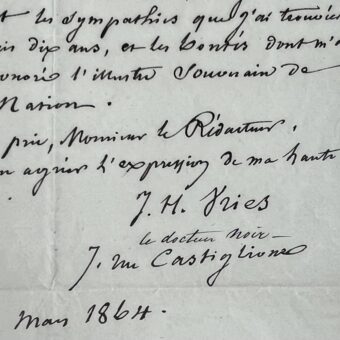 t les sympathies que j'ai trouvées
is dix ans, et les bontés dont m'a
onoré l'illustre Souverain de
Nation.
prie, Monsieur le Rédacteur,
n agréer l'expression de ma haute
J. H. Vries
le docteur noir
J. rue Castiglione
Mars 1864.